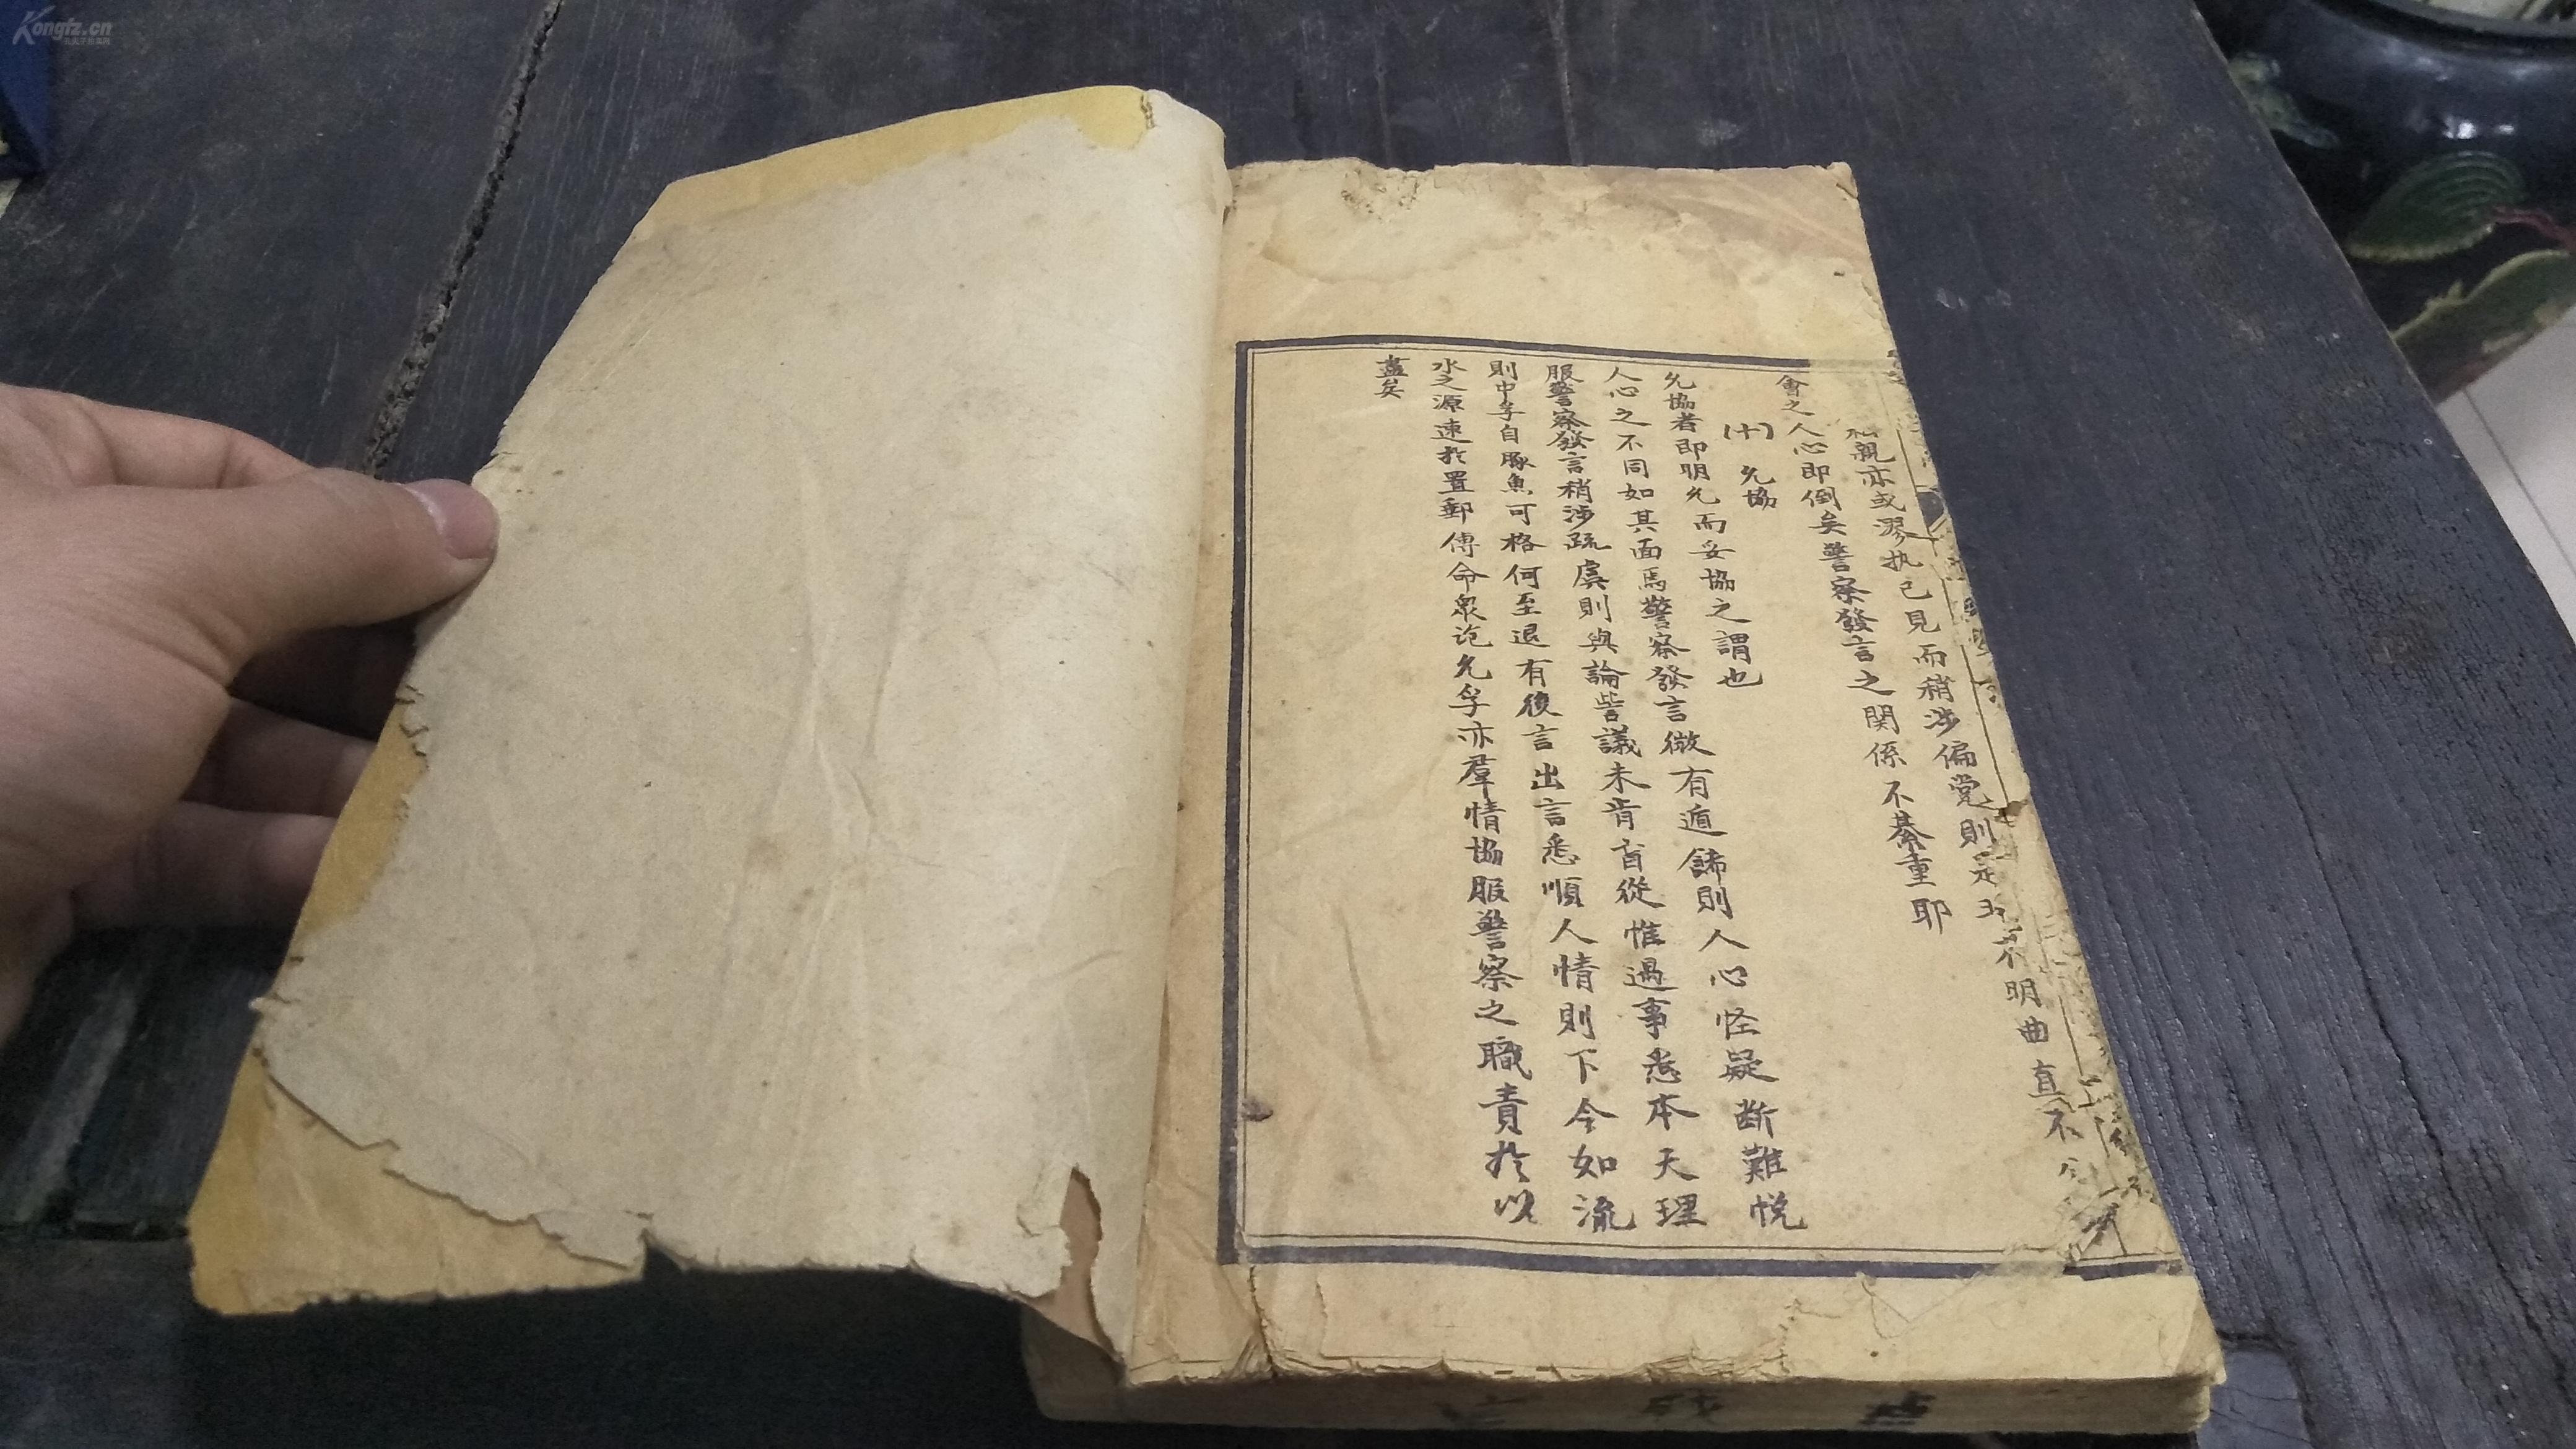 親亦或謬执己見而稍涉偏党則是非不明曲直不分
會之人心即倒矣警察發言之関係不綦重耶
(十) 允協
允協者即明允而妥協之謂也
人心之不同如其面焉警察發言微有遁餙則人心怪疑断難悦
服警察發言稍涉疏虞則與論訾議未肯盲從惟遇事悉本天理
則中孚自豚魚可格何至退有後言出言悉順人情則下令如流
水之源速於置郵傳命衆论允孚亦羣情協服警察之職責於以
盡矣
Kongfz.cn